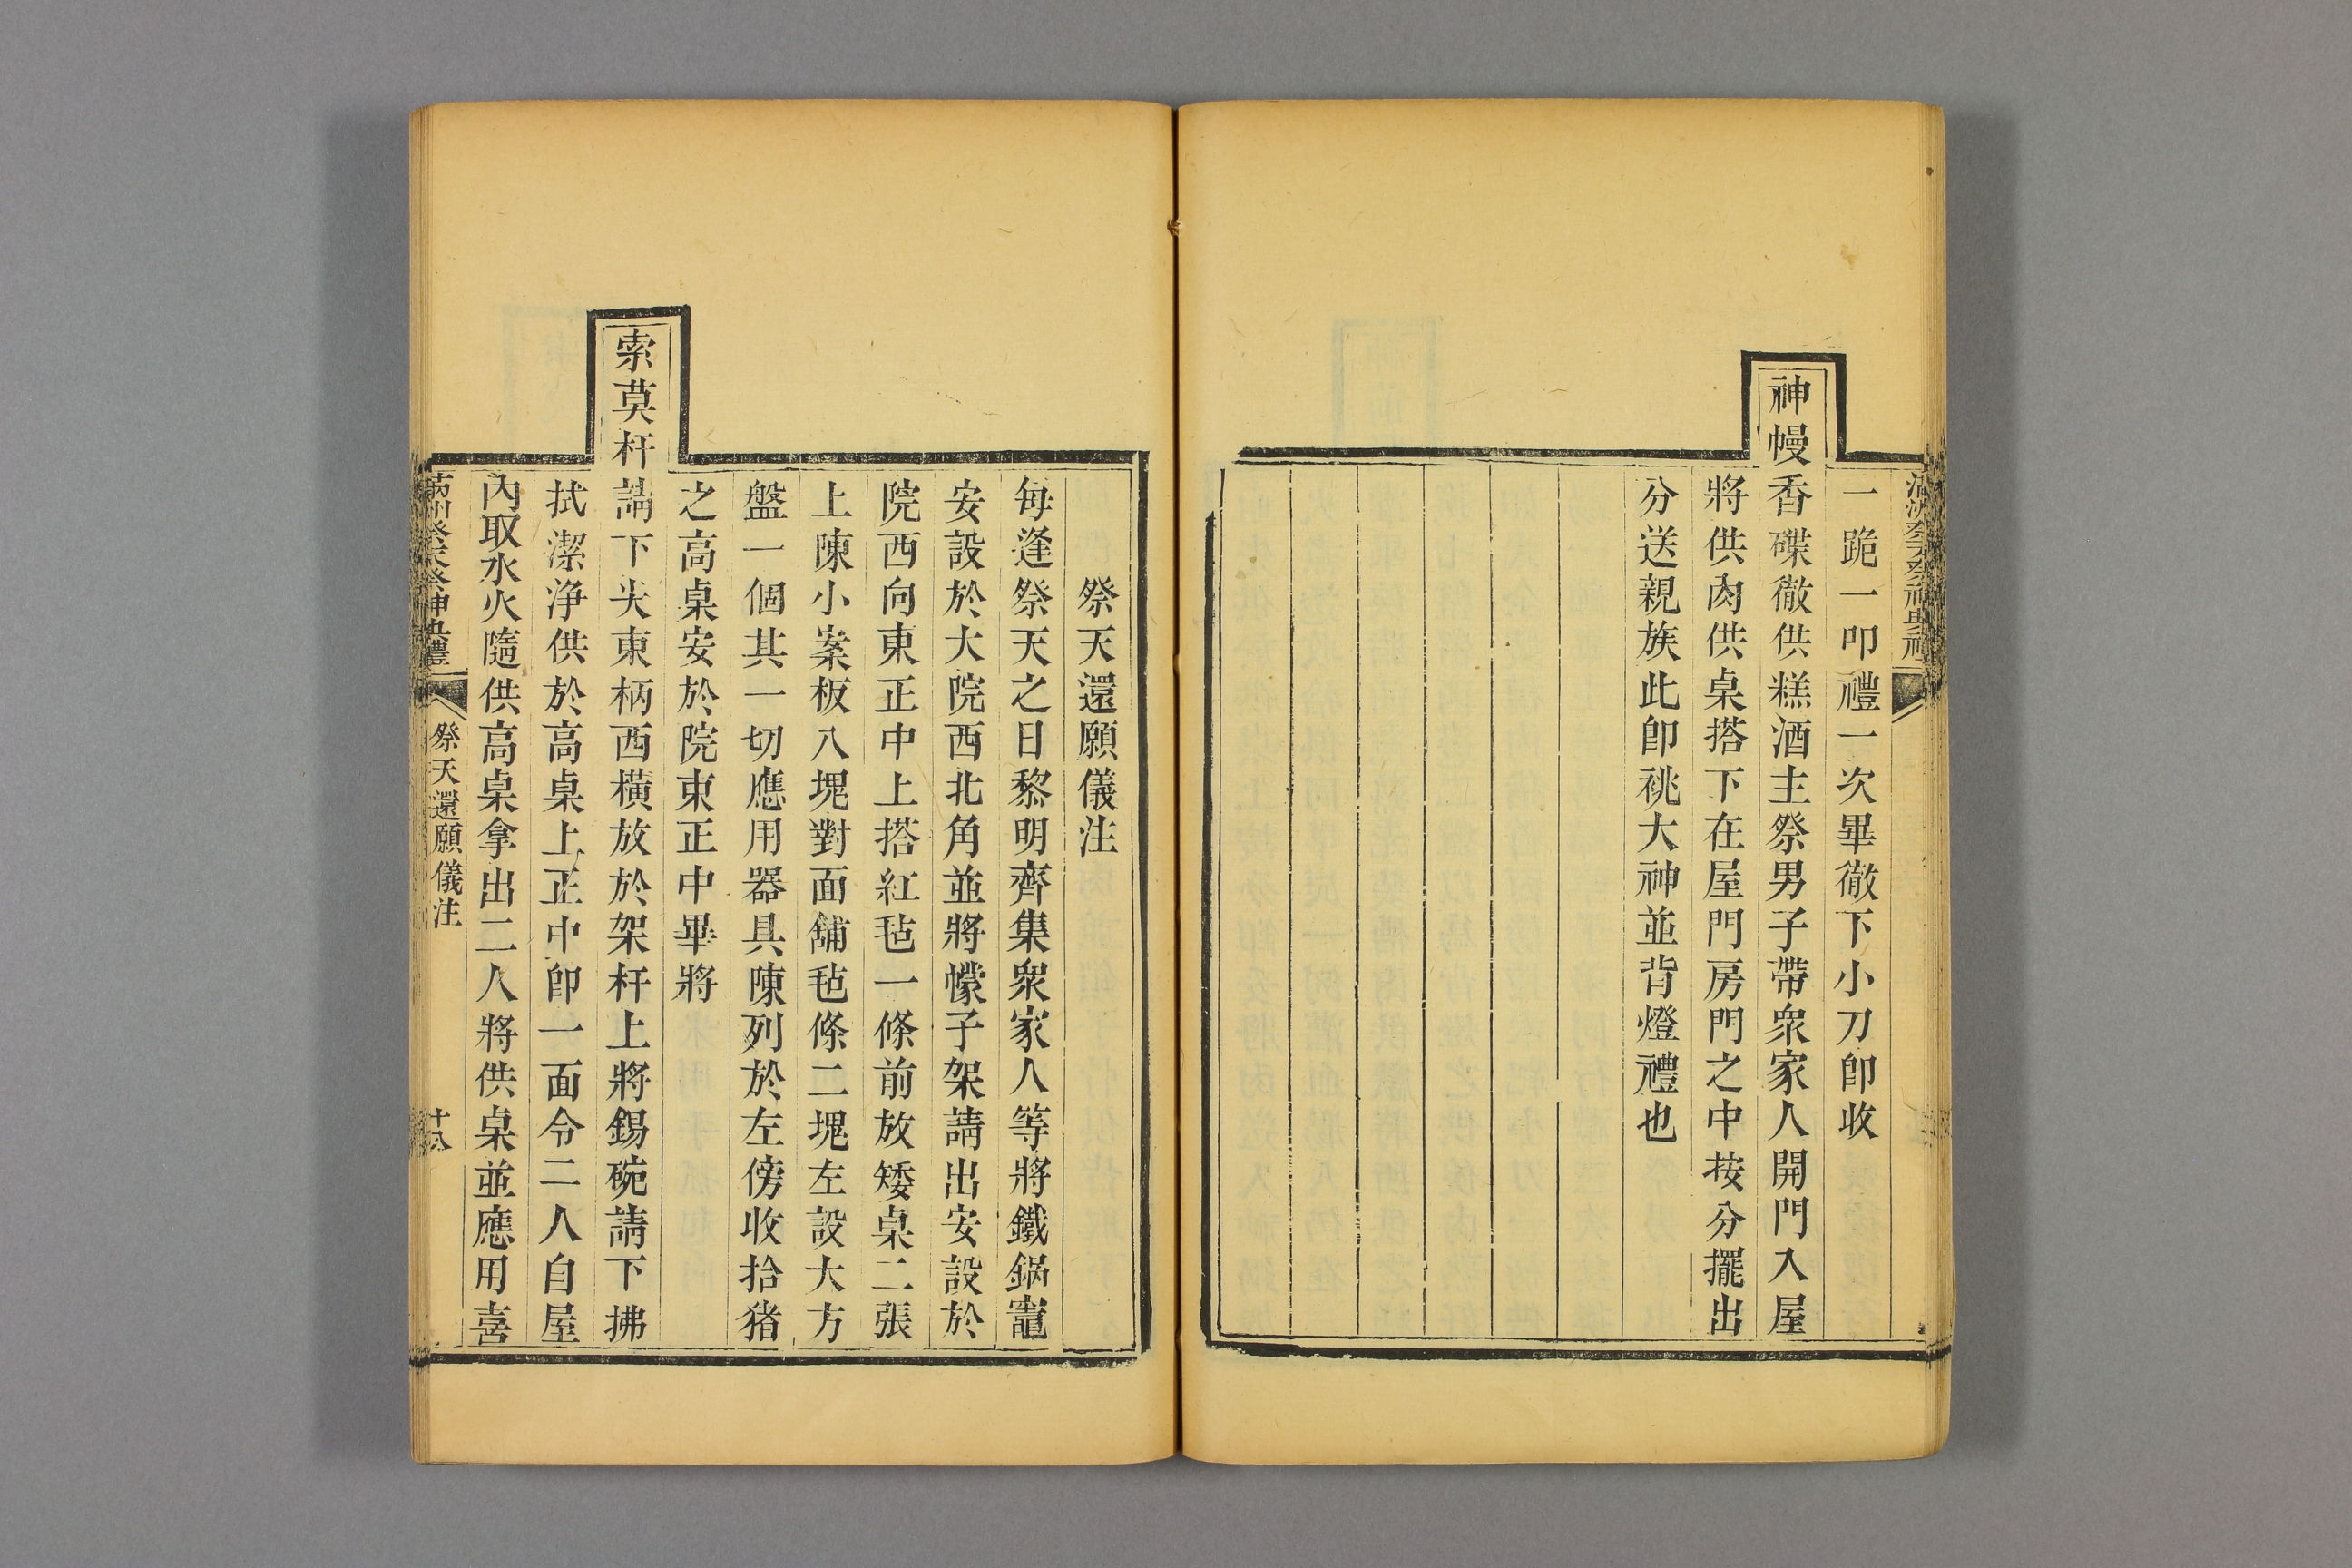 滿洲祭天祭神典禮
一跪一叩禮一次畢徹下小刀卽收
神幔香碟徹供糕酒主祭男子帶衆家人開門入屋
將供肉供桌搭下在屋門房門之中按分擺出
分送親族此卽祧大神並背燈禮也
祭天還願儀注
每逢祭天之日黎明齊集衆家人等將鐵鍋竈
安設於大院西北角並將幪子架請出安設於
院西向東正中上搭紅毡一條前放矮桌二張
上陳小案板八塊對面舖毡條二塊左設大方
盤一個其一切應用器具陳列於左傍收拾猪
之高桌安於院東正中畢將
索莫杆請下尖東柄西橫放於架杆上將錫碗請下拂
拭潔净供於高桌上正中卽一面令二人自屋
內取水火隨供高桌拿出二人將供桌並應用喜
滿洲祭天祭神典禮 祭天還願儀注 十八